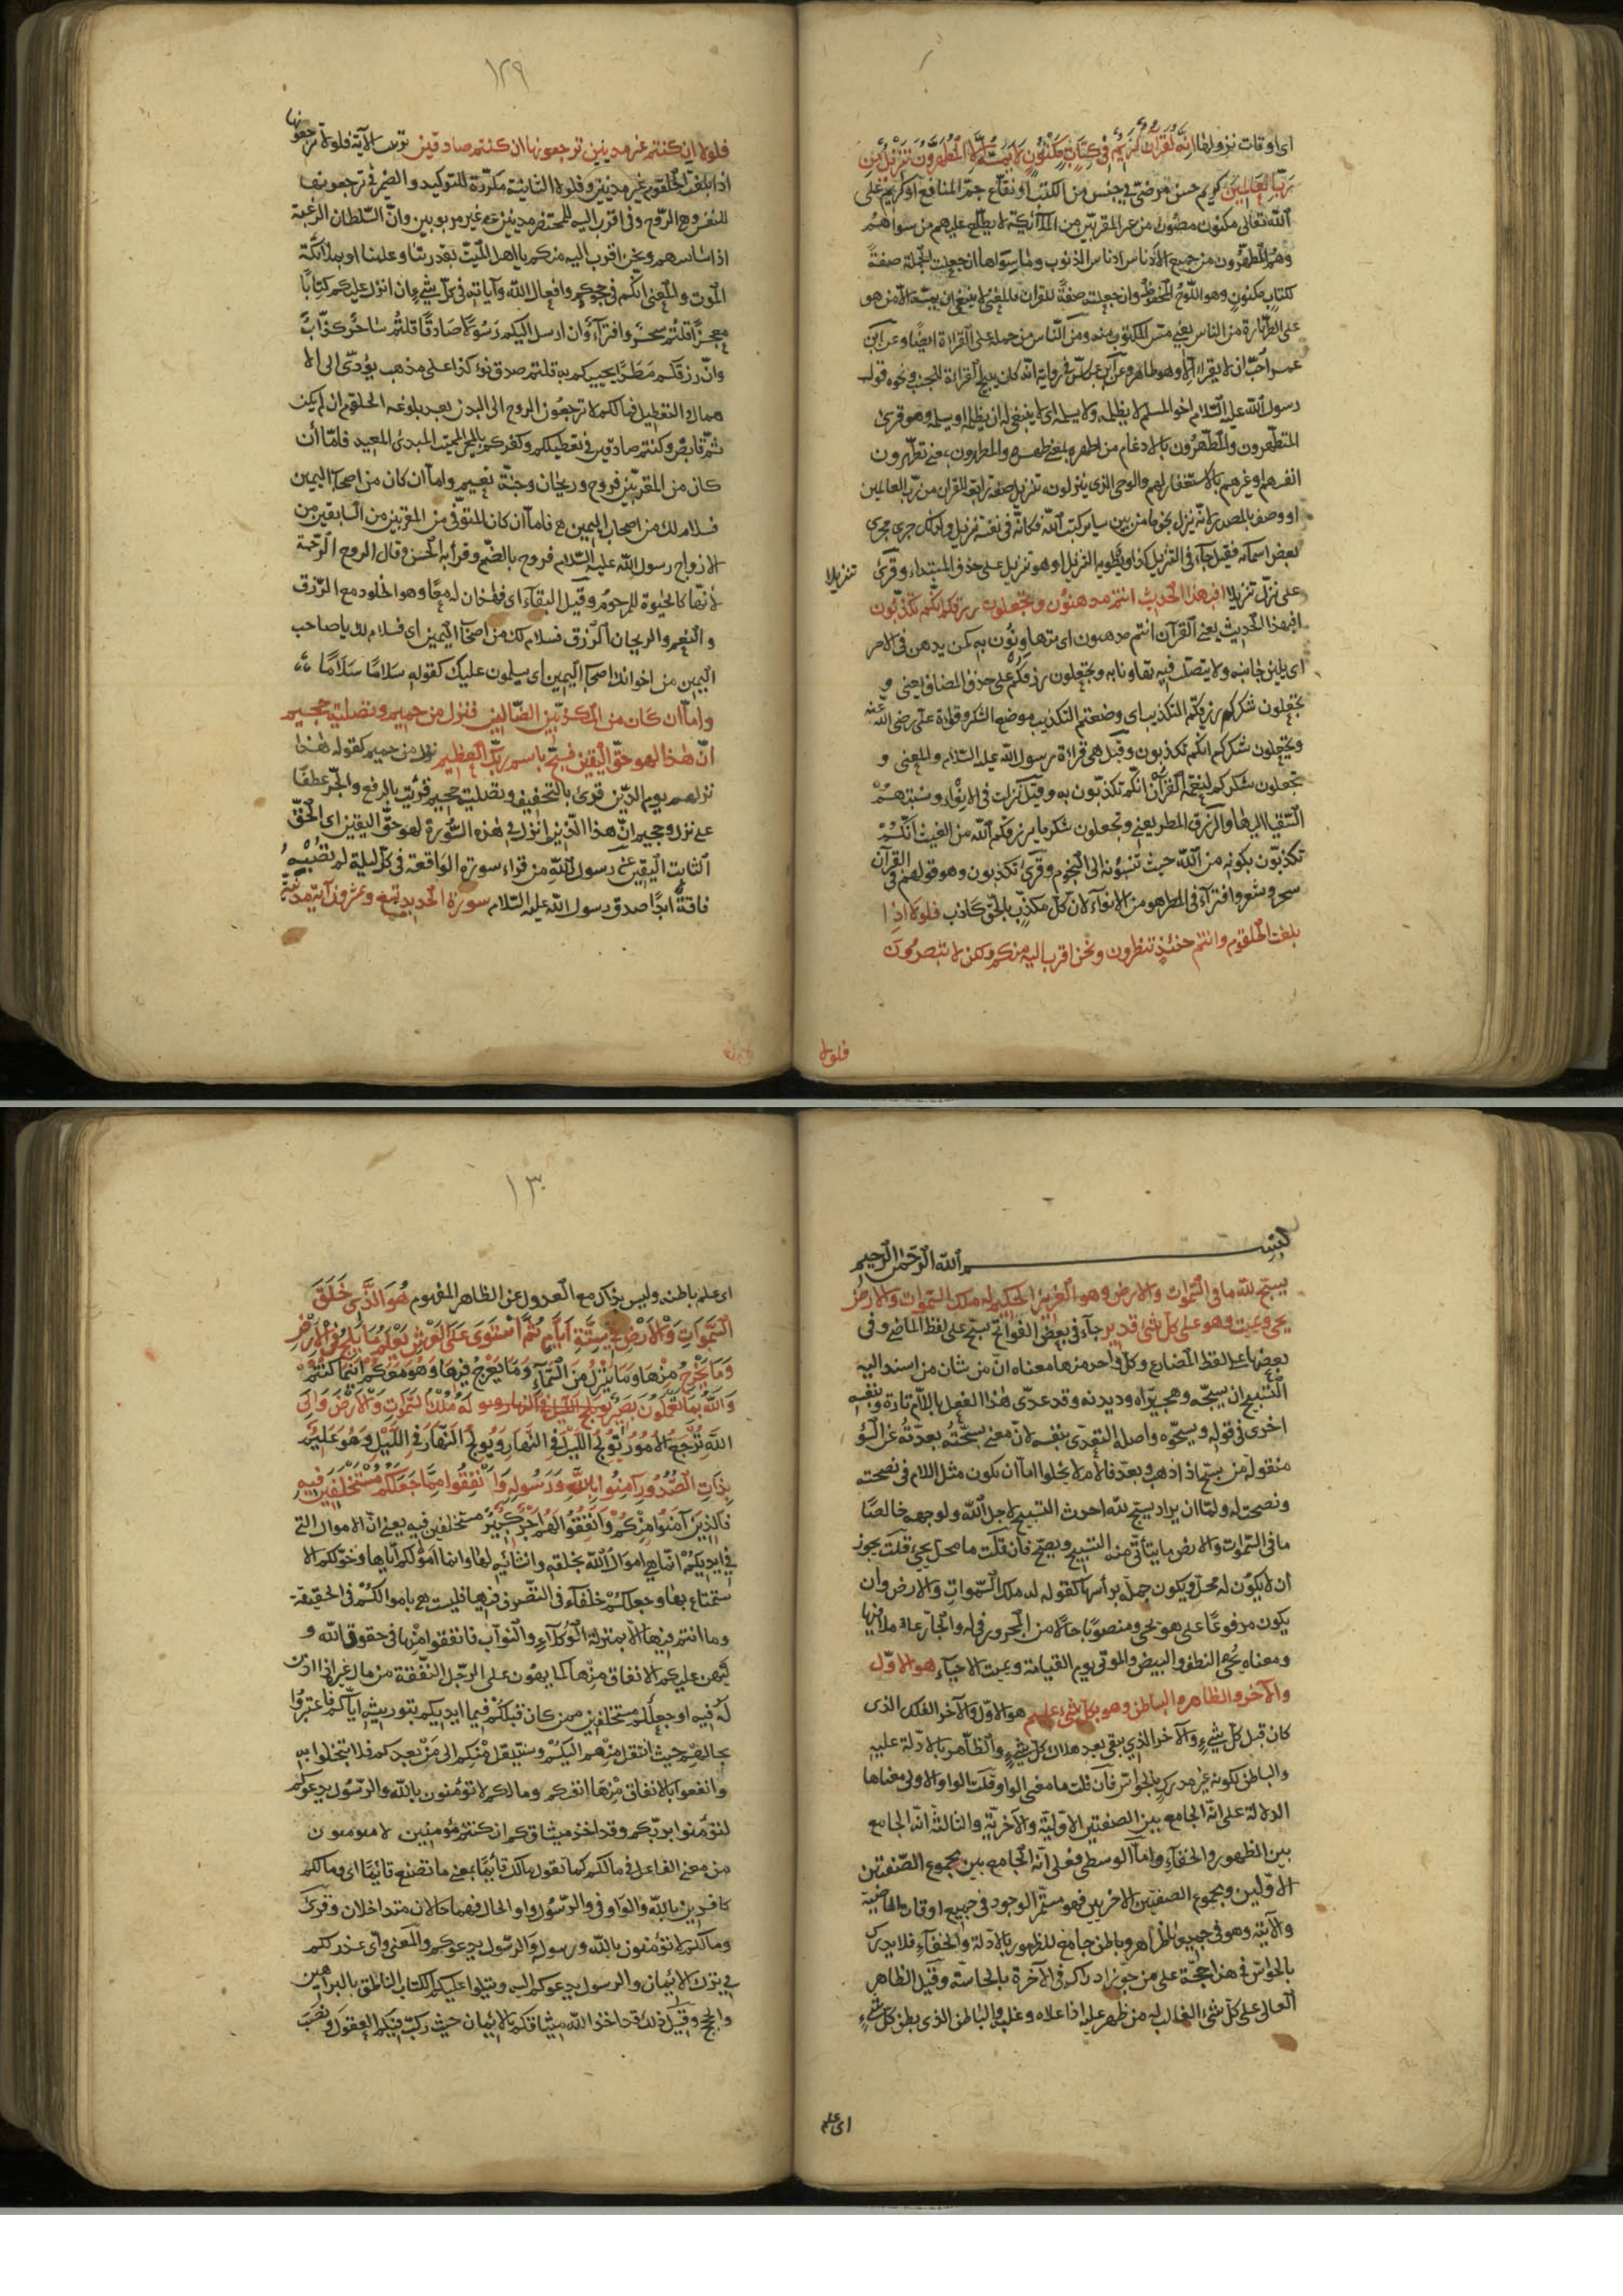 اى اوقات نزولها انه لقرآن كريم فى كتاب مكنون لا يمسه الا المطهرون تنزيل من
رب العالمين كريم حسن مرضى فى جنسه من الكتب او نفاع جم المنافع او كريم على
الله تعالى مكنون مصون من غير المقربين من الملائكة لا يطلع عليهم من سواهم
وهم المطهرون من جميع الادناس ادناس الذنوب وما سواها ان جعلت الجملة صفة
لكتاب مكنون وهو اللوح المحفوظ وان جعلته صفة للقران فالمعنى لا ينبغى ان يمسه الا من هو
على الطهارة من الناس يعنى مس المكتوب منه ومن الناس من حمله على القراءة ايضا وعن ابن
عمر احب ان لا يقرا الا وهو طاهر وعن ابن عباس فى رواية انه كان يبيح القراءة للجنب ونحوه قول
رسول الله عليه السلام اخو المسلم لا يظلمه ولا يسلمه اى لا ينبغى له ان يظلمه او يسلمه وهو قرئ
المتطهرون والمطهرون بالادغام من اطهره بمعنى طهره والمطهرون بمعنى تطهرون
انفسهم او غيرهم بالاستغفار لهم والوحى الذى ينزلونه تنزيل صفة رابعة للقران من رب العالمين
او وصف بالمصدر لانه نزل نجوما من بين ساير كتب الله فكانه فى نفسه تنزيل ولذلك جرى مجرى
بعض اسمائه فقيل جاء فى التنزيل كذا ونطق به التنزيل او هو تنزيل على حذف المبتداء وقرئ تنزيلا
على نزل تنزيلا افبهذا الحديث انتم مدهنون وتجعلون رزقكم انكم تكذبون
افبهذا الحديث يعنى القرآن انتم مدهنون اى متهاونون به كمن يدهن فى الامر
اى يلين جانبه ولا يتصلب فيه تهاونا به وتجعلون رزقكم على حذف المضاف يعنى و
تجعلون شكر رزقكم التكذيب اى وضعتم التكذيب موضع الشكر وقراءة على رضى الله عنه
وتجعلون شكركم انكم تكذبون وقيل هى قراءة رسول الله عليه السلام والمعنى و
تجعلون شكركم لنعمة القرآن انكم تكذبون به وقيل نزلت فى الانواء ونسبتهم
السقيا اليها والرزق المطر يعنى وتجعلون شكر ما يرزقكم الله من الغيث انكم
تكذبون بكونه من الله حيث تنسبونه الى النجوم وقرئ تكذبون وهو قولهم فى القرآن
سحر وشعر وافتراء فى المطر هو من الانواء لان كل مكذب بالحق كاذب فلولا اذا
بلغت الحلقوم وانتم حينئذ تنظرون ونحن اقرب اليه منكم ولكن لا تبصرون
فلولا
١٢٩
فلولا ان كنتم غير مدينين ترجعونها ان كنتم صادقين ترتيب الآية فلولا ترجعونها
اذا بلغت الحلقوم غير مدينين وفلولا الثانية مكررة للتوكيد والضمير فى ترجعونها
للنفس وهى الروح وفى اقرب اليه للمحتضر مدينين غير مربوبين وان السلطان الرعية
اذا ساسهم ونحن اقرب اليه منكم يا اهل الميت بقدرتنا وعلمنا او بملائكة
الموت والمعنى انكم فى جحودكم وافعال الله وآياته فى كل شئ ان انزل عليكم كتابا
معجزا قلتم سحر وافتراء وان ارسل اليكم رسولا صادقا قلتم ساحر كذاب
وان رزقكم مطرا يحييكم به قلتم صدق نوء كذا على مذهب يؤدى الى الا
همال والتعطيل فمالكم لا ترجعون الروح الى البدن بعد بلوغه الحلقوم ان لم يكن
ثم قابض وكنتم صادقين فى تعطيلكم وكفركم بالمحيى المميت المبدئ المعيد فاما ان
كان من المقربين فروح وريحان وجنة نعيم واما ان كان من اصحاب اليمين
فسلام لك من اصحاب اليمين فاما ان كان المتوفى من المقربين من السابقين من
الازواج رسول الله عليه السلام فروح بالضم وقرأ به الحسن وقال الروح الرحمة
لانها كالحيوة للمرحوم وقيل البقاء اى فهذان له معا وهو الخلود مع الرزق
والنعيم والريحان الرزق فسلام لك من اصحاب اليمين اى فسلام لك يا صاحب
اليمين من اخوانك اصحاب اليمين اى يسلمون عليك كقوله سلاما سلاما
واما ان كان من المكذبين الضالين فنزل من حميم وتصلية جحيم
ان هذا لهو حق اليقين فسبح باسم ربك العظيم نزل من حميم كقوله هذا
نزلهم يوم الدين قرئ بالتخفيف وتصلية جحيم قرئت بالرفع والجر عطفا
على نزل وحميم ان هذا الذى انزل فى هذه السورة لهو حق اليقين اى الحق
الثابت اليقين عن رسول الله من قراء سورة الواقعة فى كل ليلة لم تصبه
فاقة ابدا صدق رسول الله عليه السلام سورة الحديد تسع وعشرون آية مدنية
بسم الله الرحمن الرحيم
يسبح لله ما فى السموات والارض وهو العزيز الحكيم له ملك السموات والارض
يحيى ويميت وهو على كل شئ قدير جاء فى بعض الفواتح سبح على لفظ الماضى وفى
بعضها على لفظ المضارع وكل واحد منها معناه ان من شان من اسند اليه
التسبيح ان يسبحه وهجيراه وديدنه وقد عدى هذا الفعل باللام تارة وبنفسه
اخرى فى قوله ويسبحوه واصله التعدى بنفسه لان معنى سبحته بعدته عن السوء
منقول من سبح اذا ذهب وبعد فاللام لا يخلوا اما ان تكون مثل اللام فى نصحته
ونصحت له ولما ان يراد يسبح لله احدث التسبيح لاجل الله ولوجهه خالصا
ما فى السموات والارض ما يتأتى منه التسبيح ويصح فان قلت ما محل يحيى قلت يجوز
ان لا يكون له محل ويكون جملة برأسها كقوله له ملك السموات والارض وان
يكون مرفوعا على هو يحيى ومنصوبا حالا من المجرور فى له والجار عاملا فيها
ومعناه يحيى النطف والبيض والموتى يوم القيامة ويميت الاحياء هو الاول
والآخر والظاهر والباطن وهو بكل شئ عليم هو الاول والآخر الفلك الذى
كان قبل كل شئ والآخر الذى يبقى بعد هلاك كل شئ والظاهر بالادلة عليه
والباطن لكونه غير مدرك بالحواس فان قلت ما معنى الواو قلت الواو الاولى معناها
الدلالة على انه الجامع بين الصفتين الاولية والآخرية والثالثة انه الجامع
بين الظهور والخفاء واما الوسطى فعلى انه الجامع بين مجموع الصفتين
الاولين ومجموع الصفتين الاخريين فهو مستمر الوجود فى جميع اوقات الماضية
والآتية وهو فى جميعها ظاهر وباطن جامع للظهور بالادلة والخفاء فلا يدرك
بالحواس فى هذا حجة على من جوز ادراكه فى الآخرة بالحاسة وقيل الظاهر
العالى على كل شئ الغالب له من ظهر عليه اذا علاه وغلبه والباطن الذى بطن كل شئ
اى علم
١٣٠
اى علم باطنه وليس بذاك مع العدول عن الظاهر المفهوم هو الذى خلق
السموات والارض فى ستة ايام ثم استوى على العرش يعلم ما يلج فى الارض
وما يخرج منها وما ينزل من السماء وما يعرج فيها وهو معكم اينما كنتم
والله بما تعملون بصير يولج الليل فى النهار له ملك السموات والارض والى
الله ترجع الامور يولج الليل فى النهار ويولج النهار فى الليل وهو عليم
بذات الصدور آمنوا بالله ورسوله وانفقوا مما جعلكم مستخلفين فيه
فالذين آمنوا منكم وانفقوا لهم اجر كبير مستخلفين فيه يعنى ان الاموال التى
فى ايديكم انما هى اموال الله بخلقه وانشائه لها وانما اموالكم اياها وخولكم الا
ستمتاع بها وجعلكم خلفاء فى التصرف فيها فليست هى باموالكم فى الحقيقة
وما انتم فيها الا بمنزلة الوكلاء والنواب فانفقوا منها فى حقوق الله و
ليهن عليكم الانفاق منها كما يهون على الرجل النفقة من مال غيره اذا اذن
له فيه او جعلكم مستخلفين ممن كان قبلكم فيما ايديكم بتوريثه اياكم فاعتبروا
بحالهم حيث انتقل منهم اليكم وسينتقل منكم الى من بعدكم فلا تبخلوا به
وانفعوا بالانفاق منها انفسكم وما لكم لا تؤمنون بالله والرسول يدعوكم
لتؤمنوا بربكم وقد اخذ ميثاقكم ان كنتم مؤمنين لا تؤمنون
من معنى الفاعل فى مالكم كما تقول مالك قائما بمعنى ما تصنع قائما اى ومالكم
كافرين بالله والواو فى والرسول واو الحال فهما حالان متداخلان وقرئ
ومالكم لا تؤمنون بالله ورسوله والرسول يدعوكم والمعنى واى عذر لكم
فى ترك الايمان والرسول يدعوكم اليه ويتلوا عليكم الكتاب الناطق بالبراهين
والحجج وقيل ذلك قد اخذ الله ميثاقكم بالايمان حيث ركب فيكم العقول ونصب